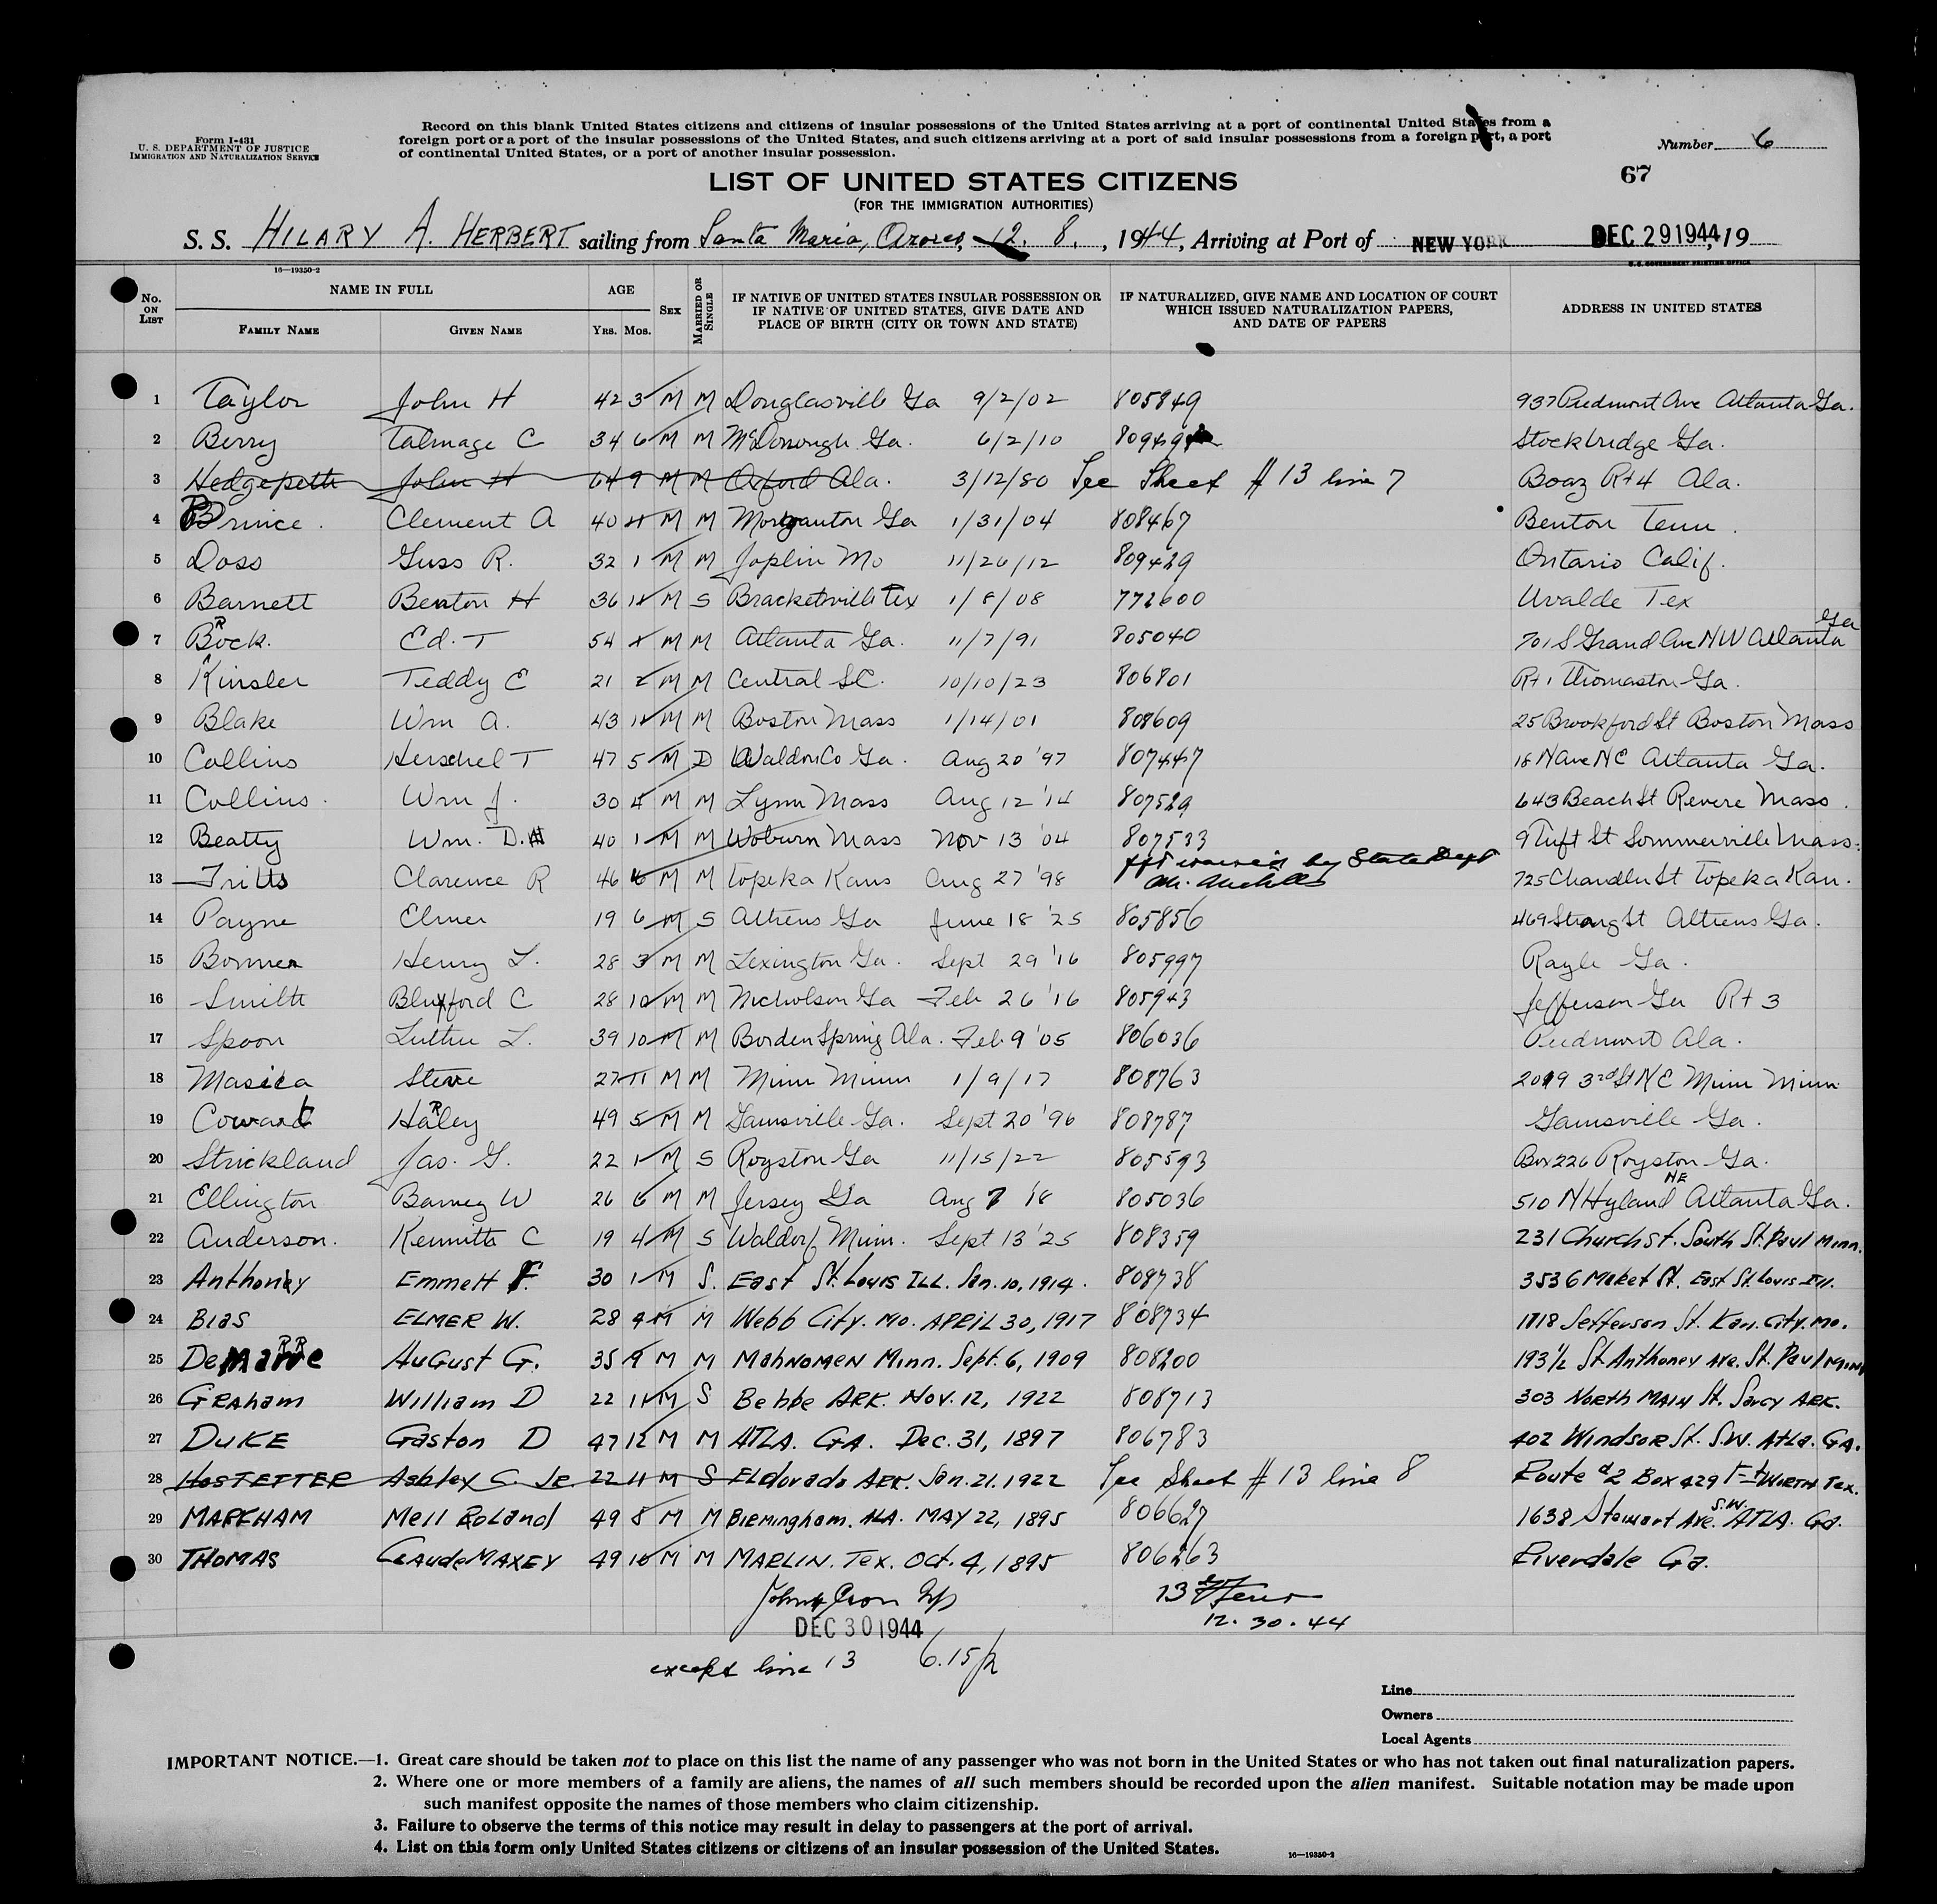 Form I-431
U. S. DEPARTMENT OF JUSTICE
IMMIGRATION AND NATURALIZATION SERVICE
Record on this blank United States citizens and citizens of insular possessions of the United States arriving at a port of continental United States from a
foreign port or a port of the insular possessions of the United States, and such citizens arriving at a port of said insular possessions from a foreign port, a port
of continental United States, or a port of another insular possession.
Number 6
67
LIST OF UNITED STATES CITIZENS
(FOR THE IMMIGRATION AUTHORITIES)
S. S. HILARY A. HERBERT sailing from Santa Maria, Azores, 12. 8. , 1944, Arriving at Port of NEW YORK DEC 29 1944, 19
16—19350-2
U. S. GOVERNMENT PRINTING OFFICE
No. ON LIST NAME IN FULL AGE SEX MARRIED OR SINGLE IF NATIVE OF UNITED STATES INSULAR POSSESSION OR IF NATIVE OF UNITED STATES, GIVE DATE AND PLACE OF BIRTH (CITY OR TOWN AND STATE) IF NATURALIZED, GIVE NAME AND LOCATION OF COURT WHICH ISSUED NATURALIZATION PAPERS, AND DATE OF PAPERS ADDRESS IN UNITED STATES
FAMILY NAME GIVEN NAME YRS. MOS.
1 Taylor John H 42 3 M M Douglasville Ga 9/2/02 805849 937 Piedmont Ave Atlanta Ga.
2 Berry Talmage C 34 6 M M McDonough Ga. 6/2/10 Stockbridge Ga.
3 Hedgepeth John H 64 9 M M Oxford Ala. 3/12/80 See Sheet # 13 line 7 Boaz Rt 4 Ala.
4 Prince Clement A 40 M M Morganton Ga 1/31/04 808467 Benton Tenn.
5 Doss Guss R. 32 1 M M Joplin Mo 11/26/12 809429 Ontario Calif.
6 Barnett Benton H 36 11 M S Bracketville Tex 1/8/08 772600 Uvalde Tex
7 Brock Ed. T 54 M M Atlanta Ga. 11/7/91 805040 701 S Grand Ave NW Atlanta Ga
8 Kinsler Teddy E 21 2 M M Central S.C. 10/10/23 806801 Rt 1 Thomaston Ga.
9 Blake Wm A. 43 11 M M Boston Mass 1/14/01 808609 25 Brookford St Boston Mass
10 Collins Herschel T 47 5 M D Waldon Co Ga. Aug 20 '97 807447 18 N Ave NE Atlanta Ga.
11 Collins. Wm J. 30 4 M M Lynn Mass Aug 12 '14 807529 643 Beach St Revere Mass.
12 Beatty Wm. D. 40 1 M M Woburn Mass Nov 13 '04 807533 9 Tuft St Sommerville Mass.
13 Tritts Clarence R 46 M M Topeka Kans Aug 27 '98 ppt waived by State Dept 725 Chandler St Topeka Kan.
14 Payne Elmer 19 6 M S Athens Ga June 18 '25 805856 469 Strong St Athens Ga.
15 Bonner Henry L. 28 3 M M Lexington Ga. Sept 29 '16 805997 Rayle Ga.
16 Smith Bluford C 28 10 M M Nicholson Ga Feb 26 '16 805943 Jefferson Ga Rt 3
17 Spoon Luther L. 39 10 M M Borden Spring Ala. Feb. 9 '05 806036 Piedmont Ala.
18 Masica Steve 27 11 M M Minn Minn 1/9/17 808763 2019 3rd St NE Minn Minn
19 Coward Harley 49 5 M M Gainsville Ga. Sept 20 '96 808787 Gainsville Ga.
20 Strickland Jas. G. 22 1 M S Royston Ga 11/15/22 805593 Box 226 Royston Ga.
21 Ellington Barney W 26 6 M M Jersey Ga Aug 7 '18 805036 510 N Hyland NE Atlanta Ga.
22 Anderson. Kennitte C 19 4 M S Waldorf Minn. Sept 13 '25 808359 231 Church St. South St. Paul Minn.
23 Anthoney Emmett F. 30 1 M S. East St. Louis ILL. Jan. 10, 1914. 808738 3536 Maket St. East St. Louis Ill.
24 Bias ELMER W. 28 M M Webb City. Mo. APRIL 30, 1917 808734 1718 Jefferson St. Kan. City. Mo.
25 DeMarre AuGust G. 35 M M MAHNOMEN Minn. Sept. 6, 1909 808200 193 1/2 St. Anthoney Ave. St. Paul Minn
26 GRAham William D 22 11 M S Bebbe ARK. Nov. 12, 1922 808713 303 North MAIN St. Sarcy ARK.
27 DUKE Gaston D 47 12 M M ATLA. GA. Dec. 31, 1897 806783 402 Windsor St. S.W. Atla. GA.
28 HOSTETTER Ashley C. Jr. 22 11 M S ELdorado ARK. Jan. 21. 1922 See Sheet # 13 line 8 Route #2 Box 429 Ft WORTH Tex.
29 MARKHAM Mell Roland 49 8 M M Birmingham. ALA. MAY 22, 1895 806627 1638 Stewart Ave. S.W. ATLA. Ga.
30 THOMAS CLAUde MAXEY 49 M M MARLIN. Tex. Oct. 4, 1895 806263 Riverdale Ga.
DEC 30 1944
12. 30. 44
except line 13
Line
Owners
Local Agents
IMPORTANT NOTICE.—1. Great care should be taken not to place on this list the name of any passenger who was not born in the United States or who has not taken out final naturalization papers.
2. Where one or more members of a family are aliens, the names of all such members should be recorded upon the alien manifest. Suitable notation may be made upon
such manifest opposite the names of those members who claim citizenship.
3. Failure to observe the terms of this notice may result in delay to passengers at the port of arrival.
4. List on this form only United States citizens or citizens of an insular possession of the United States.
16—19350-2